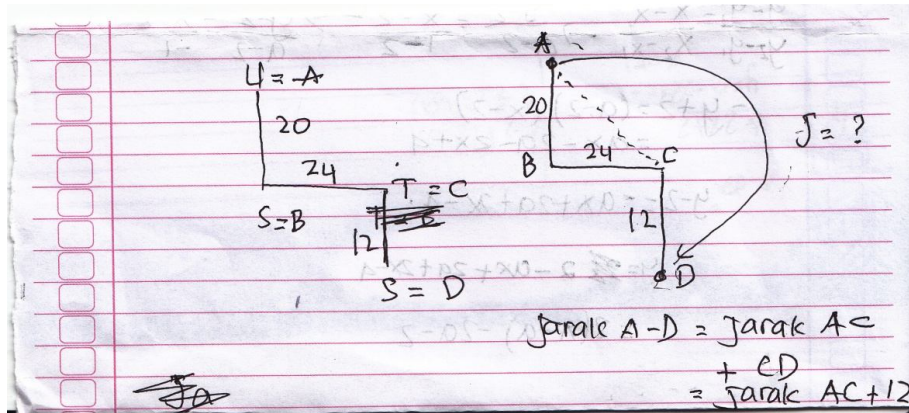 U = A
20
24
S=B
T = C
12
S = D
A
20
B
24
C
12
D
J = ?
Jarak A-D = Jarak AC
+ CD
= Jarak AC+12